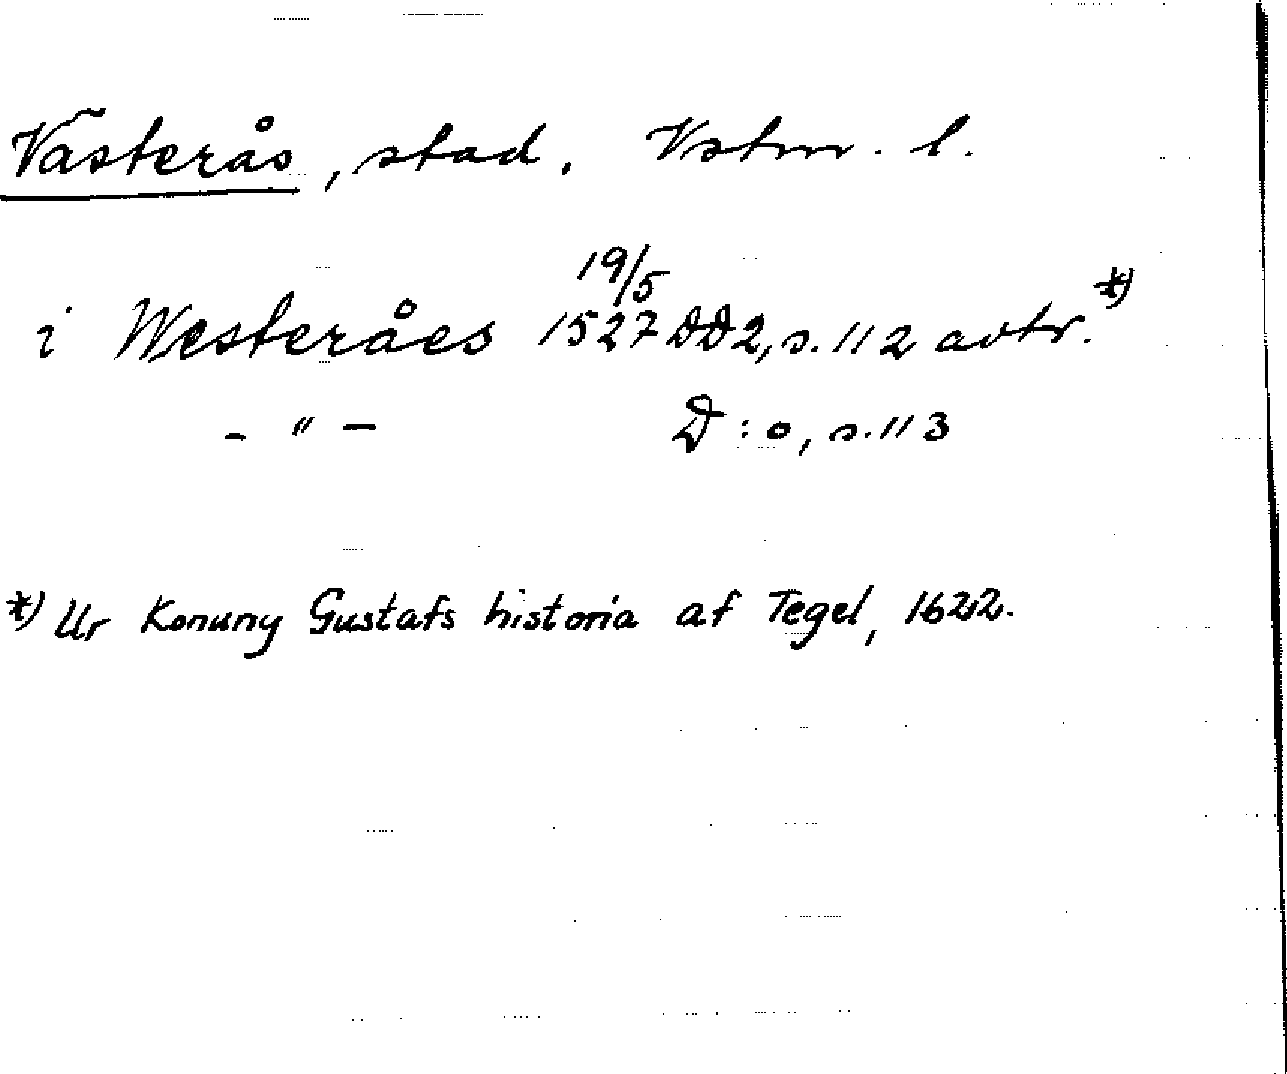 Västerås, stad. Vstm. l.
i Westeråes 19/5 1527 DD2, s. 112 avtr. *)
- " - D:o, s. 113
*) Ur Konung Gustafs historia af Tegel, 1622.